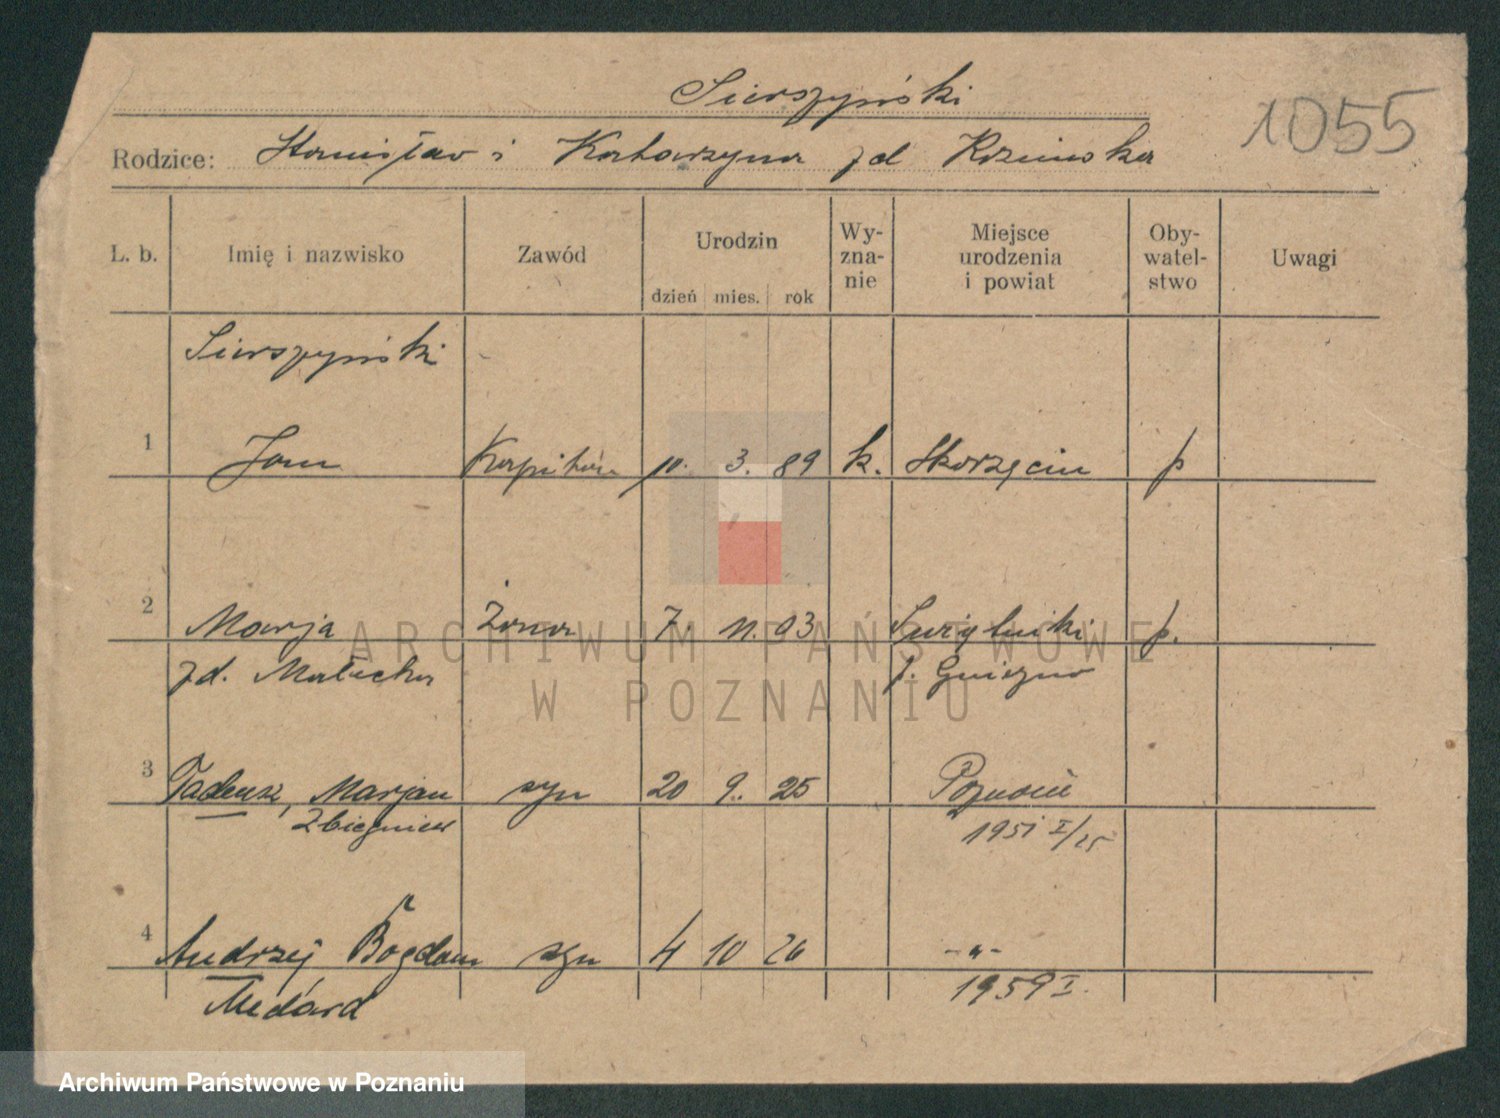 Sierszyński
1055
Rodzice: Stanisław i Katarzyna zd Rzeniuska
L. b. Imię i nazwisko Zawód Urodzin Wy-zna-nie Miejsce urodzenia i powiat Oby-watel-stwo Uwagi
dzień mies. rok
Sierszyński
1 Jan Kapitan 10. 3. 89 k. Skorzęcin p
2 Marja Żona 7. 11. 93 p.
zd. Małecka p. Gniezno
3 Tadeusz, Marjan syn 20 9. 25 Poznań
Zbigniew 1951 I/25
4 Andrzej Bogdan syn 4 10 26 -„-
Medard 1959 I.
ARCHIWUM PAŃSTWOWE
W POZNANIU
Archiwum Państwowe w Poznaniu